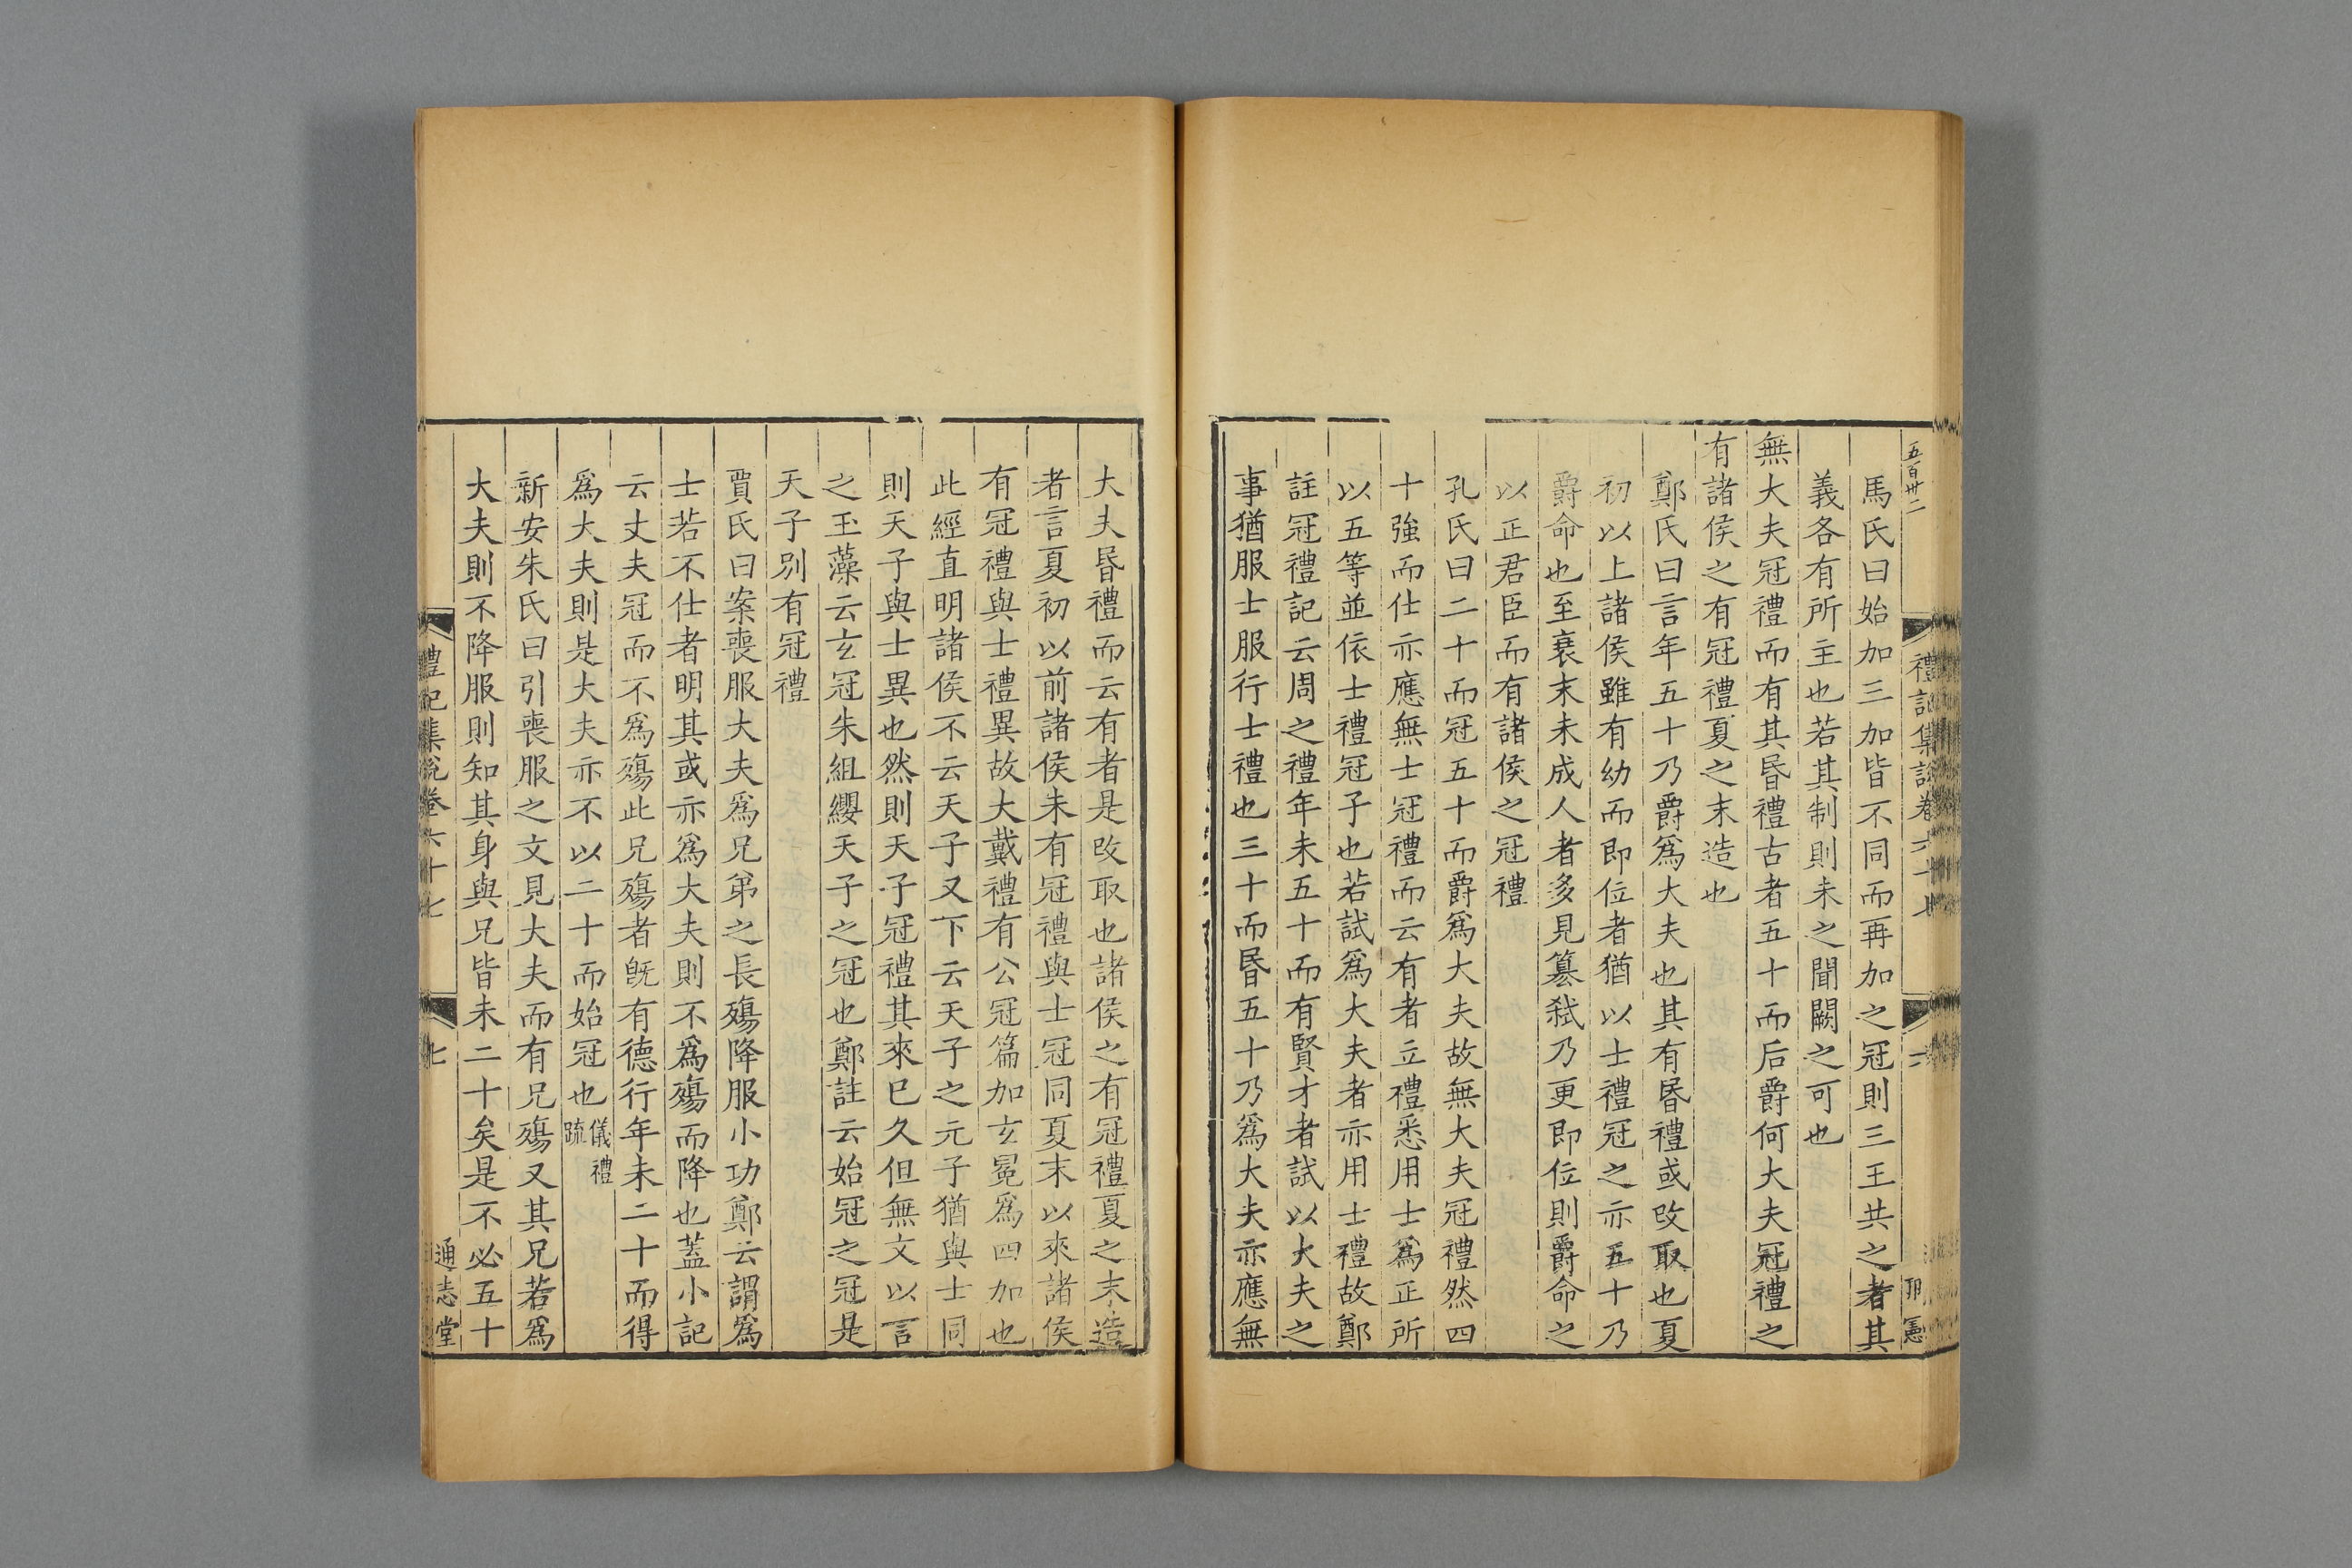 五百卅二
禮記集說卷六十七
馬氏曰始加三加皆不同而再加之冠則三王共之者其
義各有所主也若其制則未之聞闕之可也
無大夫冠禮而有其昬禮古者五十而后爵何大夫冠禮之
有諸侯之有冠禮夏之末造也
鄭氏曰言年五十乃爵爲大夫也其有昬禮或改取也夏
初以上諸侯雖有幼而即位者猶以士禮冠之亦五十乃
爵命也至衰末未成人者多見篡弑乃更即位則爵命之
以正君臣而有諸侯之冠禮
孔氏曰二十而冠五十而爵爲大夫故無大夫冠禮然四
十強而仕亦應無士冠禮而云有者立禮悉用士爲正所
以五等並依士禮冠子也若試爲大夫者亦用士禮故鄭
註冠禮記云周之禮年未五十而有賢才者試以大夫之
事猶服士服行士禮也三十而昬五十乃爲大夫亦應無
大夫昬禮而云有者是改取也諸侯之有冠禮夏之末造
者言夏初以前諸侯未有冠禮與士冠同夏末以來諸侯
有冠禮與士禮異故大戴禮有公冠篇加玄冕爲四加也
此經直明諸侯不云天子又下云天子之元子猶與士同
則天子與士異也然則天子冠禮其來已久但無文以言
之玉藻云玄冠朱組纓天子之冠也鄭註云始冠之冠是
天子別有冠禮
賈氏曰案喪服大夫爲兄弟之長殤降服小功鄭云謂爲
士若不仕者明其或亦爲大夫則不爲殤而降也蓋小記
云丈夫冠而不爲殤此兄殤者旣有德行年未二十而得
爲大夫則是大夫亦不以二十而始冠也儀禮疏
新安朱氏曰引喪服之文見大夫而有兄殤又其兄若爲
大夫則不降服則知其身與兄皆未二十矣是不必五十
禮記集說卷六十七
七
通志堂